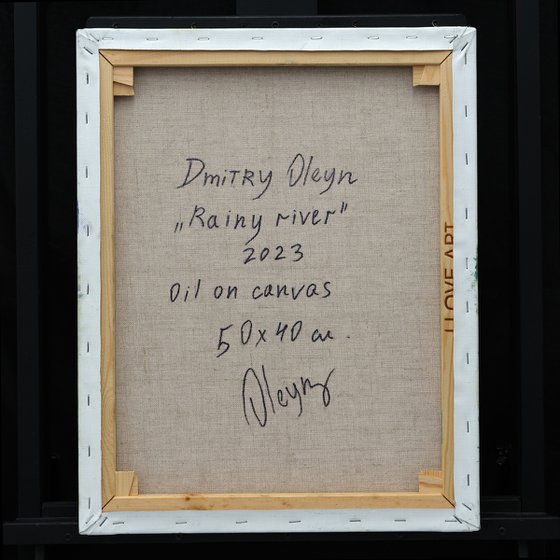 Dmitry Oleyn
„Rainy river"
2023
Oil on canvas
50x40 см.
Oleyn
I LOVE ART